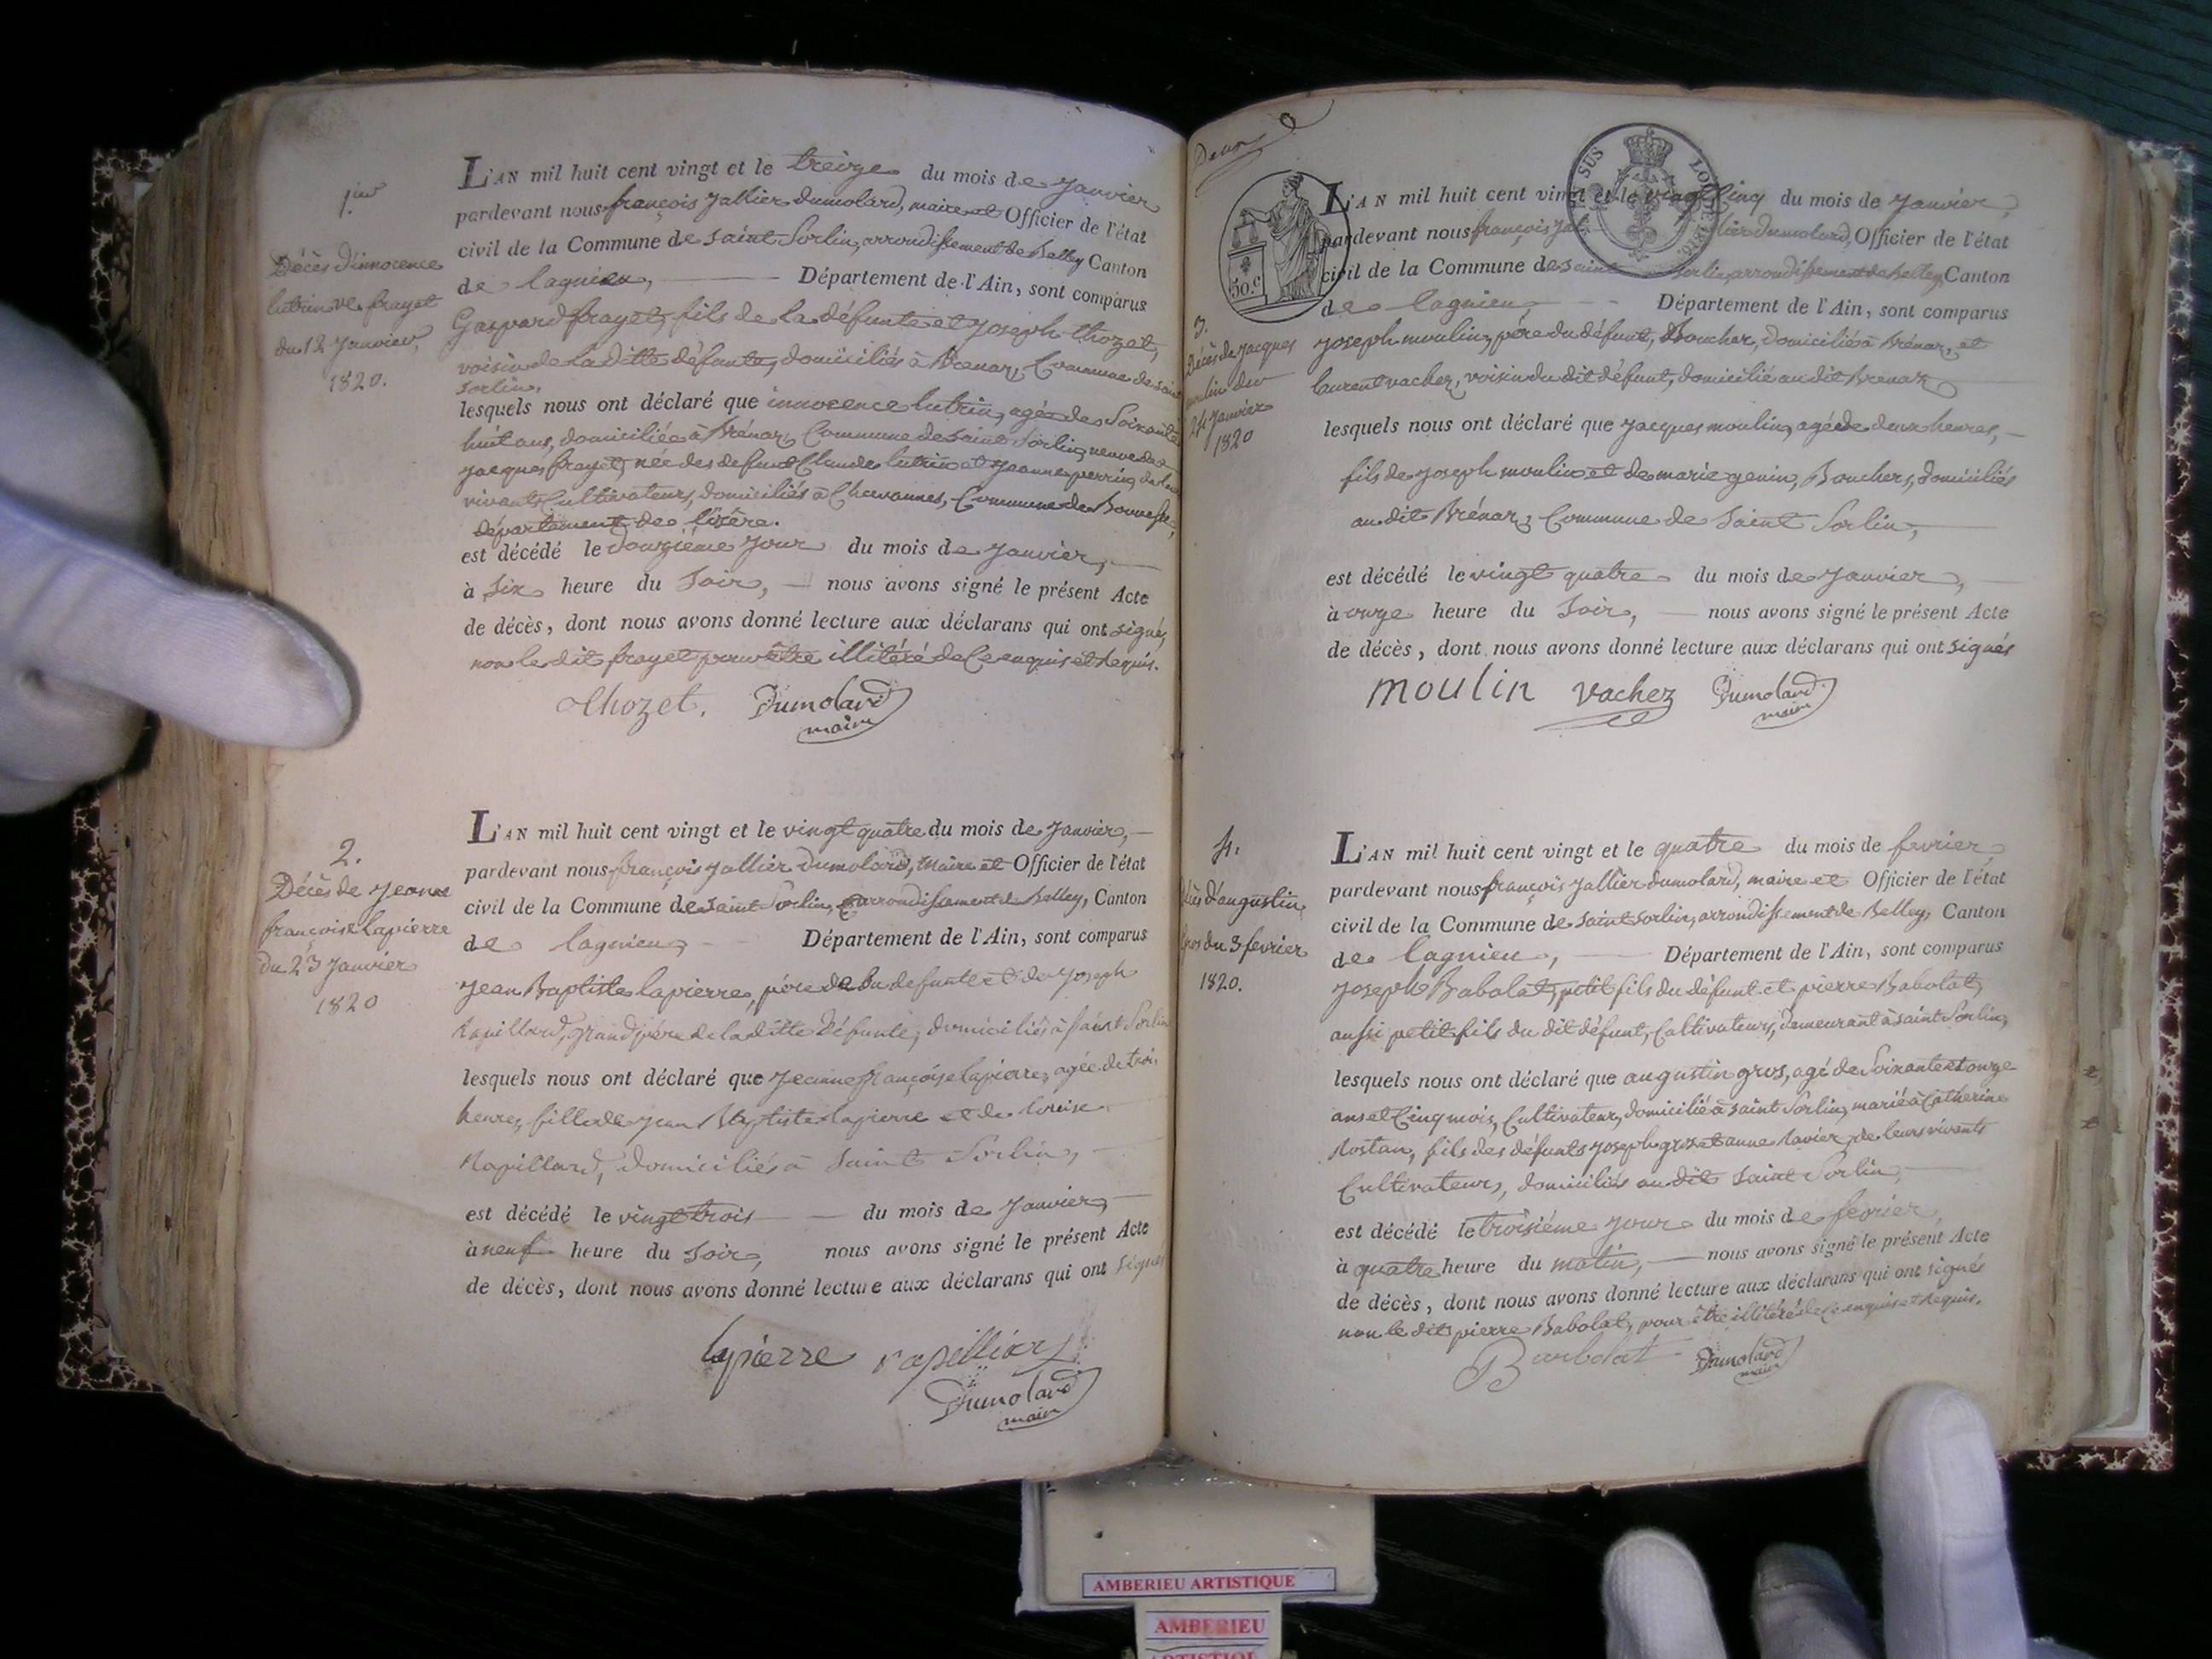 1.ier
Décès d'innocence
lutrin ve frayet
du 12 Janvier
1820.
L'AN mil huit cent vingt et le treize du mois de Janvier
pardevant nous françois Jallier Dumolard, maire et Officier de l'état
civil de la Commune de Saint Sorlin, arrondissement de Belley Canton
de lagnieu, Département de l'Ain, sont comparus
Gaspard frayet, fils de la défunte et Joseph thozet,
voisin de la ditte défunte, domiciliés à Brenaz, Commune de saint
Sorlin,
lesquels nous ont déclaré que innocence lutrin, agée de Soixante
huit ans, domiciliée à Brénaz, Commune de Saint Sorlin, veuve de
Jacques frayet, née des defunts Claude lutrin et Jeanne perrin, de leur
vivants Cultivateurs, domiciliés à Chavannes, Commune de
département de l'isère.
est décédé le douzième jour du mois de Janvier,
à Six heure du Soir, nous avons signé le présent Acte
de décès, dont nous avons donné lecture aux déclarans qui ont signé,
non le dit frayet pour être illitéré de Ce enquis et requis.
thozet. Dumolard
maire
2.
Décès de Jeanne
françoise lapierre
du 23 Janvier
1820
L'AN mil huit cent vingt et le vingt quatre du mois de Janvier,
pardevant nous françois Jallier Dumolard, Maire et Officier de l'état
civil de la Commune de Saint Sorlin, arrondissement de Belley, Canton
de lagnieu, Département de l'Ain, sont comparus
Jean Baptiste lapierre, père de la defunte et de Joseph
Rapillard, grand père de la ditte Défunte, domiciliés à saint Sorlin
lesquels nous ont déclaré que Jeanne françoise lapierre, agée de trois
heures, fille de Jean Baptiste lapierre et de louise
Rapillard, domiciliés à Saint Sorlin,
est décédé le vingt trois du mois de Janvier,
à neuf heure du Soir, nous avons signé le présent Acte
de décès, dont nous avons donné lecture aux déclarans qui ont signés
lapierre rapilliard
Dumolard
maire
Deux
50.c
SUS
3.
Décès de Jacques
moulin du
24 Janvier
1820
L'AN mil huit cent vingt et le vingt Cinq du mois de Janvier,
pardevant nous françois Jallier Dumolard, Officier de l'état
civil de la Commune de Saint Sorlin, arrondissement de Belley, Canton
de lagnieu, Département de l'Ain, sont comparus
Joseph moulin, père du défunt, Boucher, domicilié à Brénaz, et
laurent vachez, voisin du dit défunt, domicilié au dit Brénaz
lesquels nous ont déclaré que Jacques moulin, agé de deux heures,
fils de Joseph moulin et de marie genin, Bouchers, domiciliés
au dit Brénaz, Commune de Saint Sorlin,
est décédé le vingt quatre du mois de Janvier,
à onze heure du Soir, nous avons signé le présent Acte
de décès, dont nous avons donné lecture aux déclarans qui ont signés
moulin vachez Dumolard
maire
4.
Décès d'augustin
gros du 3 fevrier
1820.
L'AN mil huit cent vingt et le quatre du mois de fevrier,
pardevant nous françois Jallier Dumolard, maire et Officier de l'état
civil de la Commune de Saint Sorlin, arrondissement de Belley, Canton
de lagnieu, Département de l'Ain, sont comparus
Joseph Babolat, petit fils du défunt et pierre Babolat,
aussi petit fils du dit défunt, Cultivateurs, demeurant à Saint Sorlin,
lesquels nous ont déclaré que augustin gros, agé de Soixante et onze
ans et Cinq mois, Cultivateur, domicilié à Saint Sorlin, marié à Catherine
Rostan, fils des défunts Joseph gros et anne Ravier, de leurs vivants
Cultivateurs, domiciliés au dit Saint Sorlin,
est décédé le troisième jour du mois de fevrier,
à quatre heure du matin, nous avons signé le présent Acte
de décès, dont nous avons donné lecture aux déclarans qui ont signés
non le dit pierre Babolat, pour être illitéré de ce enquis et requis.
Barbolat Dumolard
maire
AMBERIEU ARTISTIQUE
AMBERIEU
ARTISTIQUE